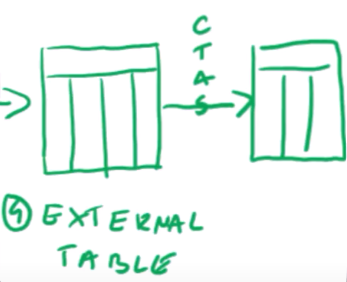 CTAS
④ EXTERNAL
TABLE